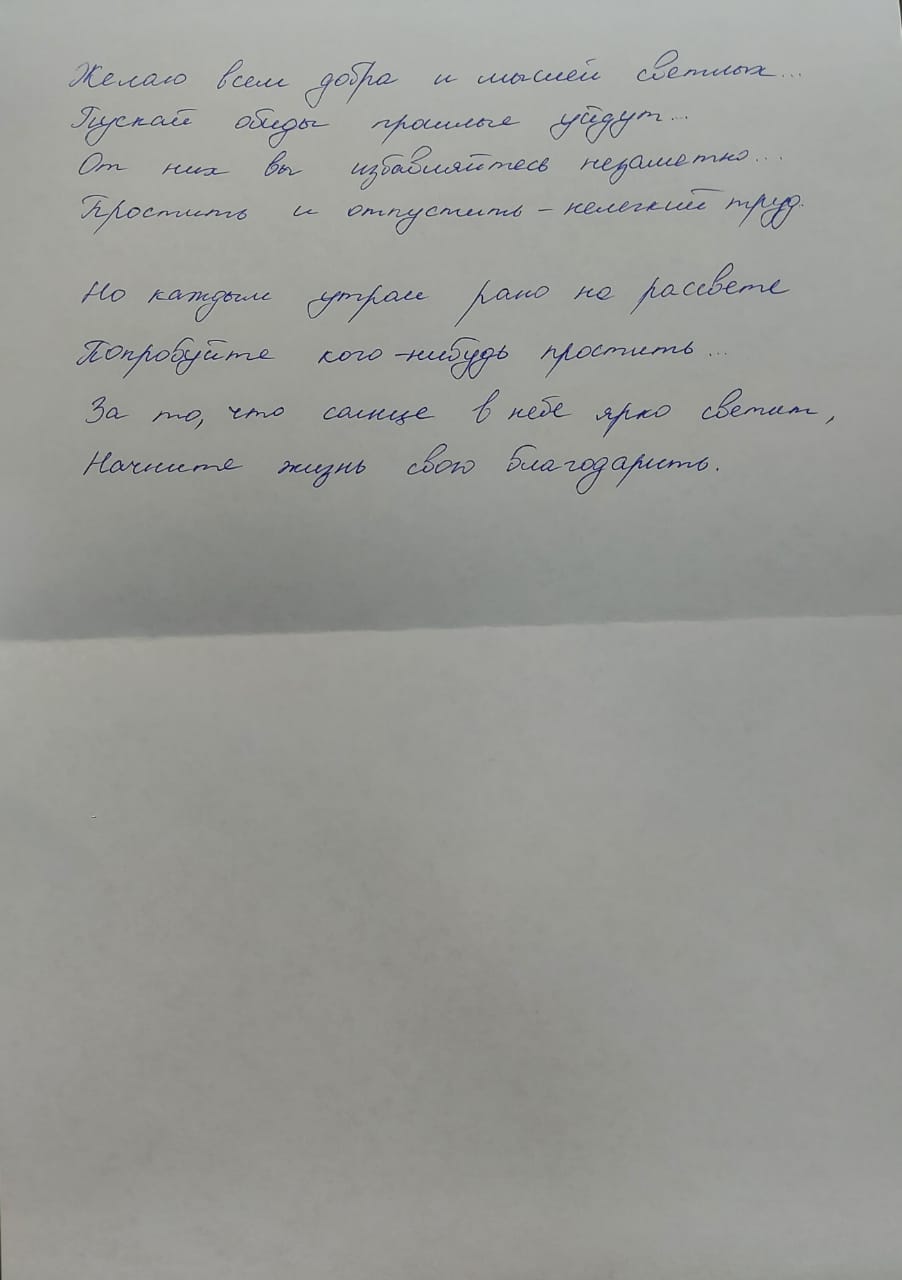 Желаю всем добра и мыслей светлых...
Пускай обиды прошлые уйдут...
От них вы избавляйтесь незаметно...
Простить и отпустить - нелегкий труд.
Но каждым утром рано на рассвете
Попробуйте кого-нибудь простить...
За то, что солнце в небе ярко светит,
Начните жизнь свою благодарить.